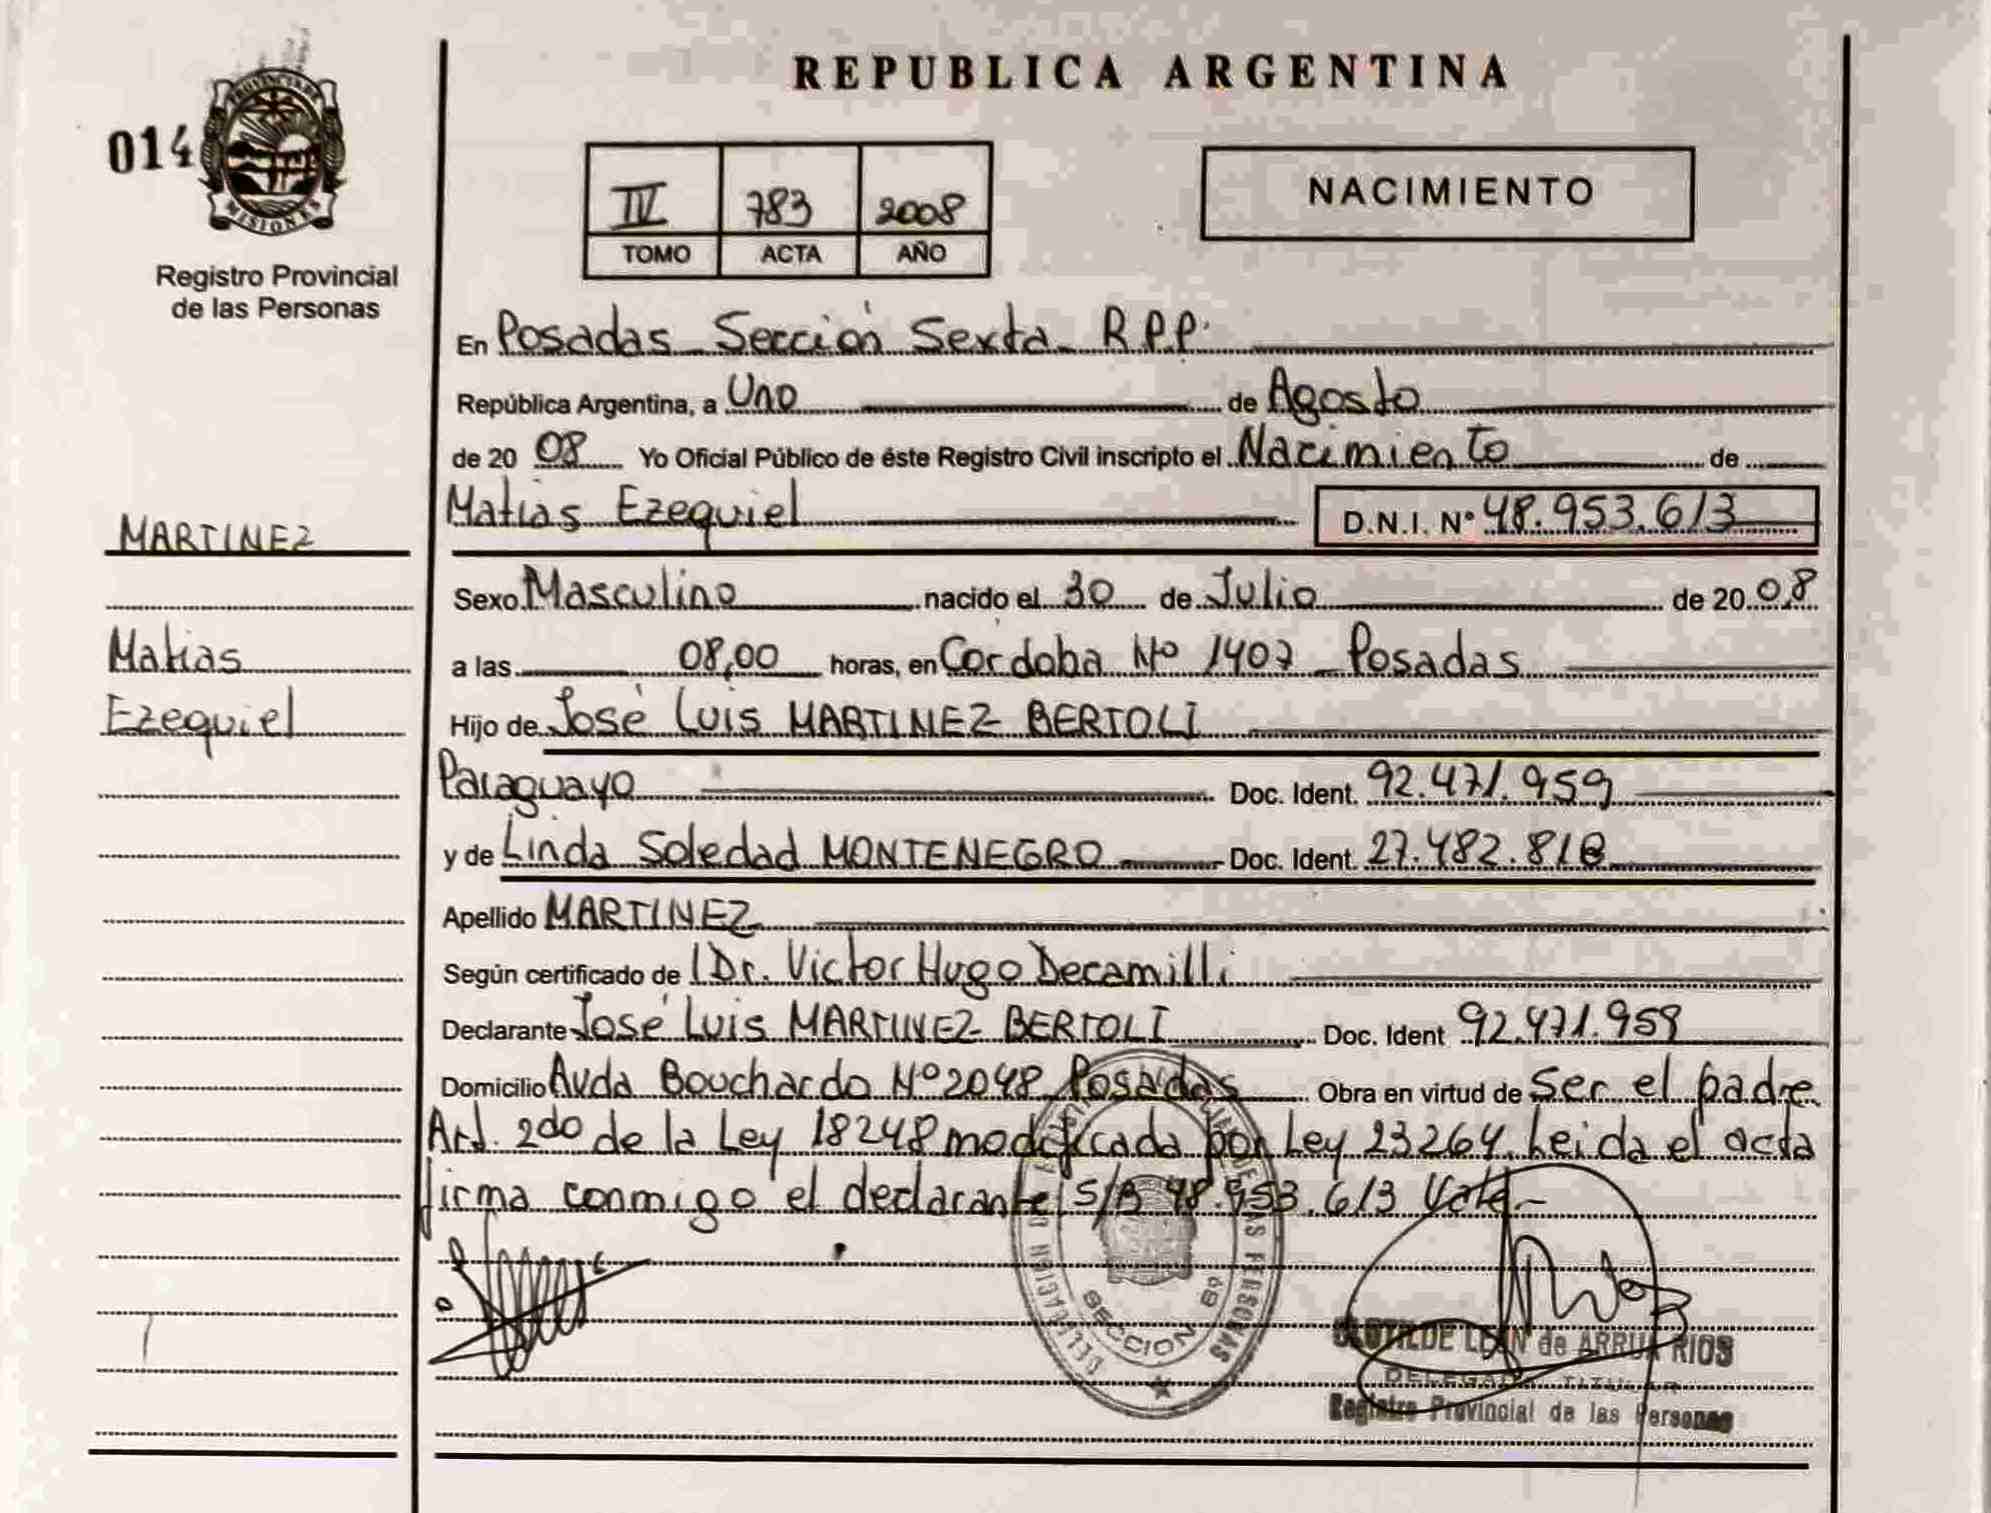 REPUBLICA ARGENTINA
014
PROVINCIA DE
MISIONES
Registro Provincial
de las Personas
IV 783 2008
TOMO ACTA AÑO
NACIMIENTO
En Posadas Sección Sexta R.P.P.
República Argentina, a Uno de Agosto
de 20 08 Yo Oficial Público de éste Registro Civil inscripto el Nacimiento de
Matias Ezequiel D.N.I. Nº 48.953.613
MARTINEZ
Matias
Ezequiel
Sexo Masculino nacido el 30 de Julio de 20 08
a las 08,00 horas, en Córdoba Nº 1407 Posadas
Hijo de José Luis MARTINEZ BERTOLI
Paraguayo Doc. Ident. 92.471.959
y de Linda Soledad MONTENEGRO Doc. Ident. 27.482.818
Apellido MARTINEZ
Según certificado de Dr. Victor Hugo Decamilli
Declarante José Luis MARTINEZ BERTOLI Doc. Ident 92.471.959
Domicilio Avda Bouchardo Nº 2048 Posadas Obra en virtud de ser el padre
Art. 2do de la Ley 18248 modificada por Ley 23264. Leida el acta
firma conmigo el declarante S/B 48.953.613 Vale.-
SECCION 69
CLOTILDE LEÓN de ARRUA RIOS
DELEGADA TITULAR
Registro Provincial de las Personas